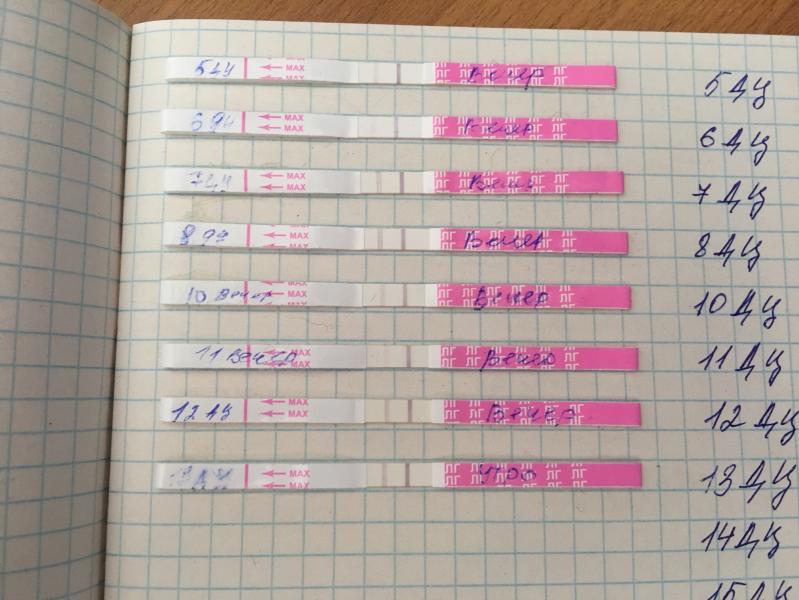 5ДЦ MAX MAX Вечер ЛГ ЛГ ЛГ ЛГ 5ДЦ
6ДЦ MAX MAX Вечер ЛГ ЛГ ЛГ ЛГ 6ДЦ
7ДЦ MAX MAX Вечер ЛГ ЛГ ЛГ ЛГ 7ДЦ
8ДЦ MAX MAX Вечер ЛГ ЛГ ЛГ ЛГ 8ДЦ
10 Вечер MAX MAX MAX Вечер ЛГ ЛГ ЛГ ЛГ 10ДЦ
11 Вечер MAX MAX Вечер ЛГ ЛГ ЛГ ЛГ 11ДЦ
12ДЦ MAX MAX Вечер ЛГ ЛГ ЛГ ЛГ 12ДЦ
13ДЦ MAX MAX Утро ЛГ ЛГ ЛГ ЛГ 13ДЦ
14ДЦ
15ДЦ